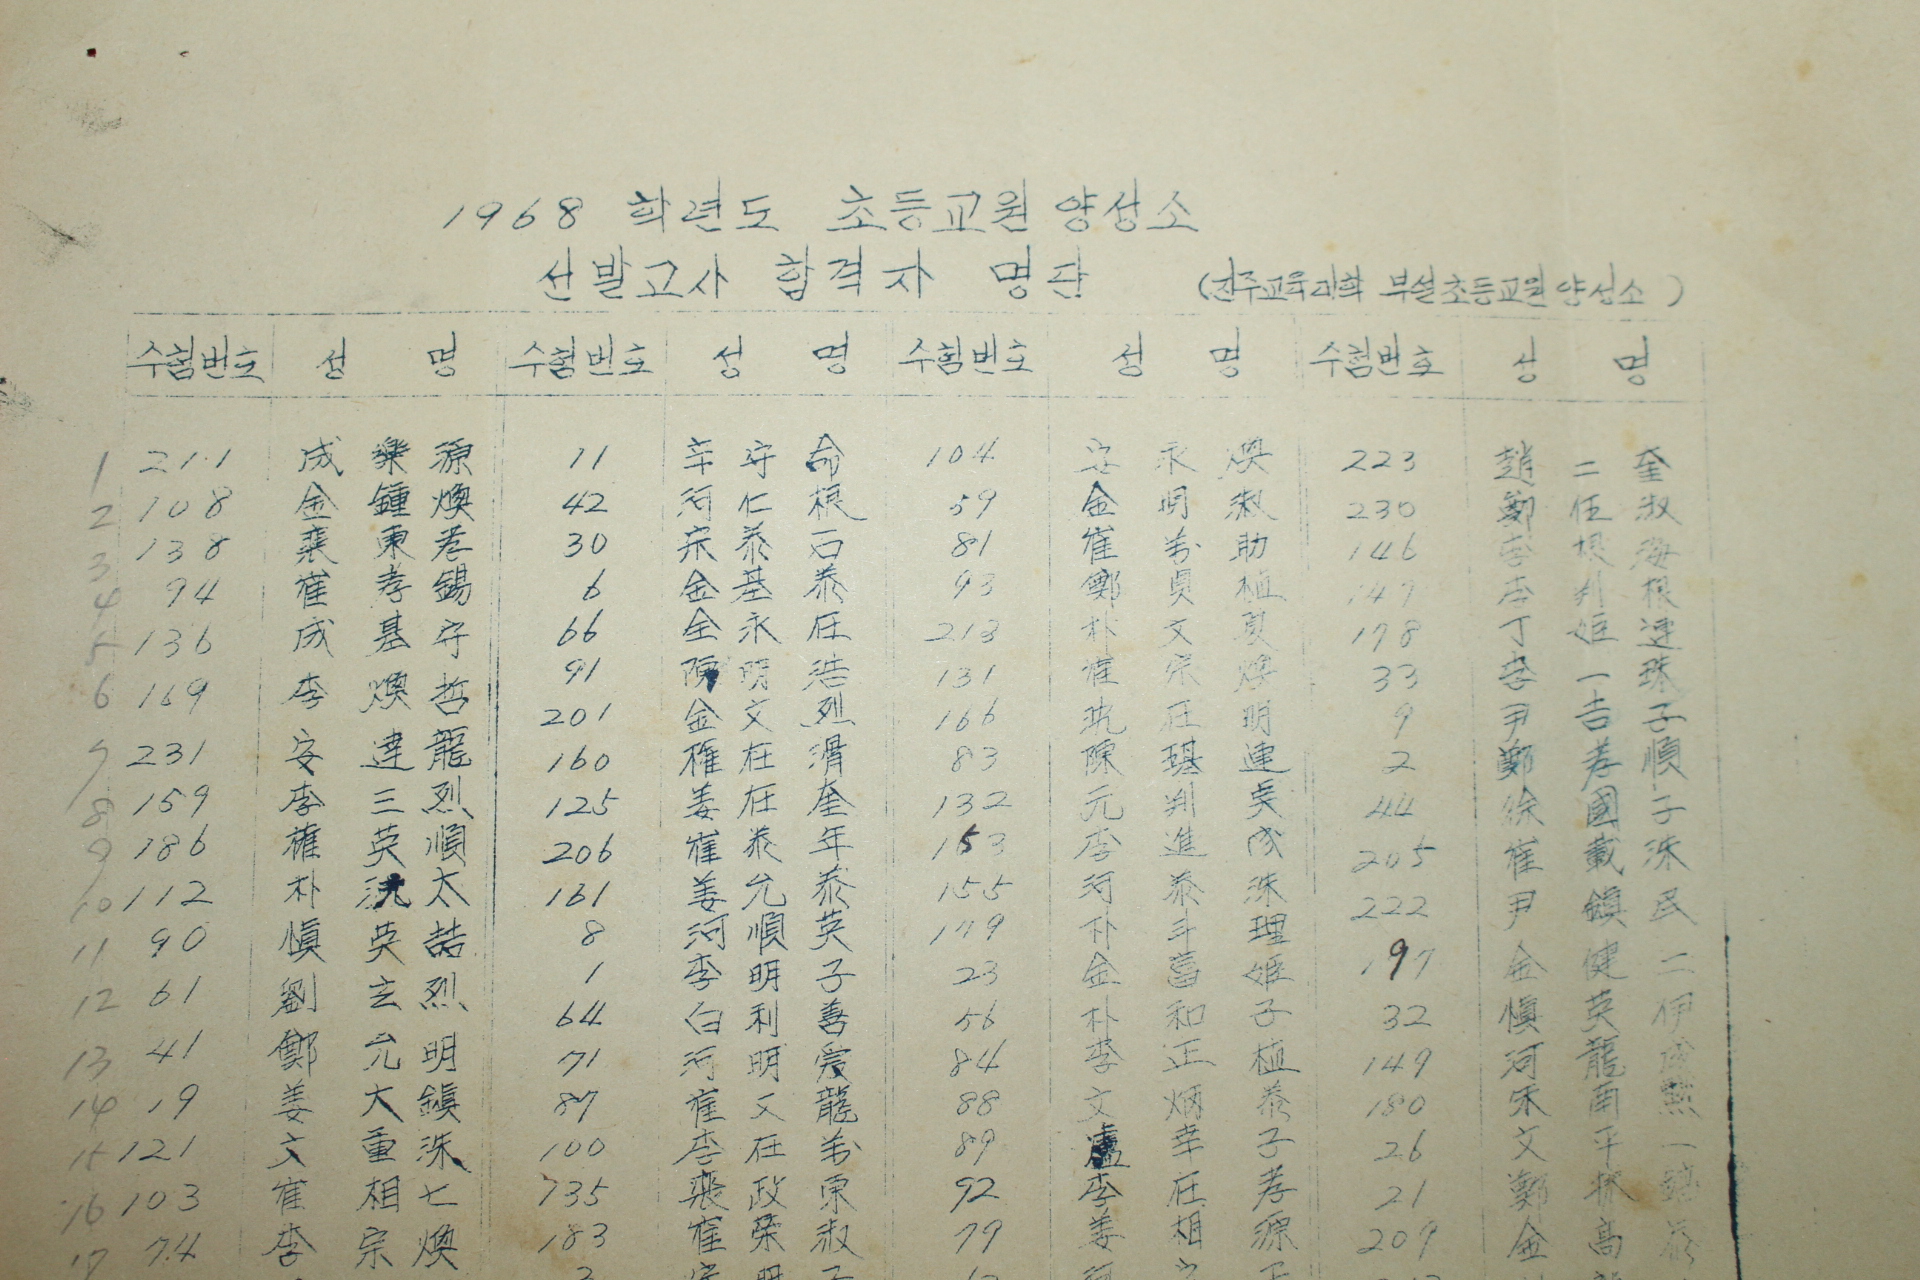 1968 학년도 초등교원양성소
선발고사 합격자 명단 (진주교육대학 부설초등교원양성소)
수험번호 성 명 수험번호 성 명 수험번호 성 명 수험번호 성 명
1 211 成樂源 11 辛守命 104 安永煥 223 趙二奎
2 108 金鍾煥 42 河仁根 59 金明淑 230 鄭任淑
3 138 裵東孝 30 宋泰石 81 崔萬助 146 李根海
4 94 崔孝錫 6 金基泰 93 鄭貞植 147 李判根
5 136 成基守 66 全永在 213 朴文夏 178 丁姬連
6 169 李煥哲 91 陳明浩 131 崔宗煥 33 李一珠
7 231 安達龍 201 金文烈 166 在明 9 尹吉子
8 159 李三烈 160 權在滑 83 陳琪連 2 鄭孝順
9 186 權英順 125 姜在奎 132 元判吳 44 徐國子
10 112 朴沈太 206 崔泰年 153 李進成 205 崔載洙
11 90 愼英喆 161 姜允泰 155 河泰洙 222 尹鎭民
12 61 劉玄烈 8 河順英 179 朴斗理 197 金健二
13 41 鄭允明 1 李明子 23 金菖姬 32 愼英伊
14 19 姜大鎭 64 白利善 56 朴和子 149 河龍
15 121 文重洙 71 河明愛 84 李正植 180 宋南熙
16 103 崔相七 87 崔文龍 88 文炳泰 26 文平一
17 74 李宗煥 100 李在萬 89 盧幸子 21 鄭
735 裵政東 92 李在孝 209 金高泰
183 崔榮淑 79 姜相源